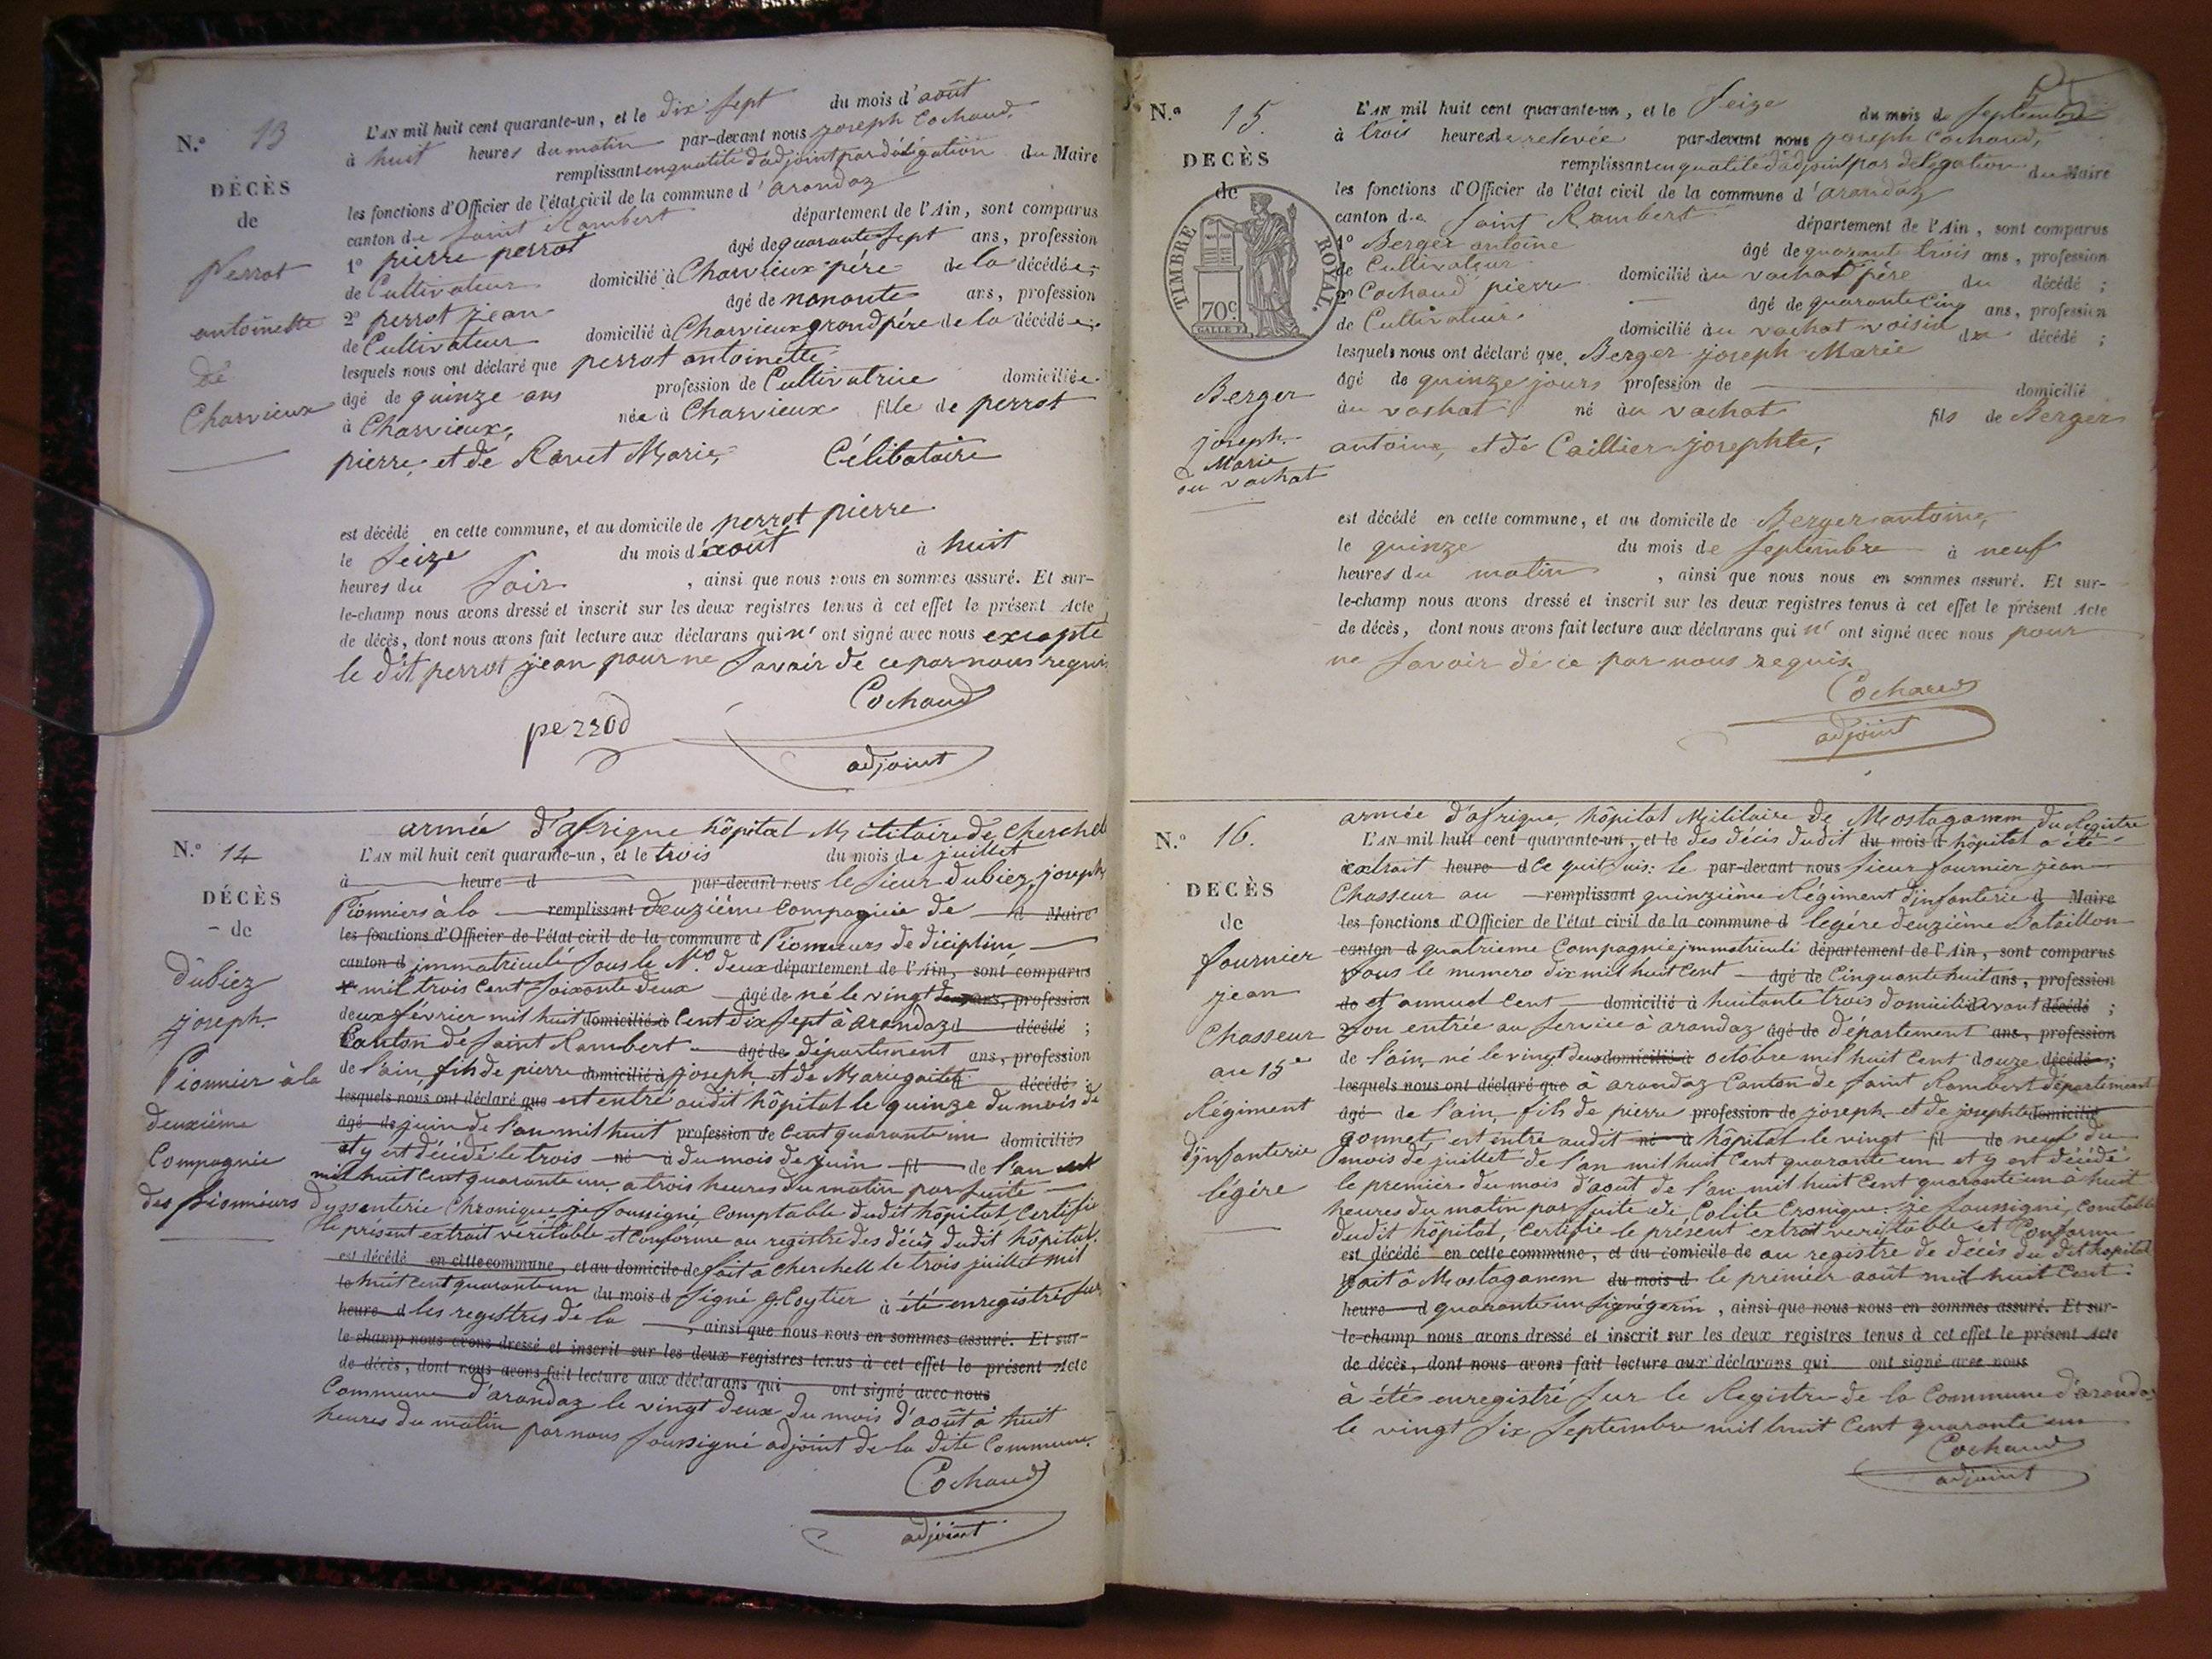 N.º 13
DÉCÈS
de
Perrot
antoinette
de
Charvieux
L'AN mil huit cent quarante-un, et le dix sept du mois d'août
à huit heures du matin par-devant nous joseph Cochaud,
remplissant en qualité d'adjoint par délégation du Maire
les fonctions d'Officier de l'état civil de la commune d'arandaz
canton de saint Rambert département de l'Ain, sont comparus
1º pierre perrot âgé de quarante sept ans, profession
de Cultivateur domicilié à Charvieux père de la décédée;
2º perrot jean âgé de nonante ans, profession
de Cultivateur domicilié à Charvieux grand père de la décédée;
lesquels nous ont déclaré que perrot antoinette
âgé de quinze ans profession de Cultivatrice domiciliée
à Charvieux, née à Charvieux fille de perrot
pierre, et de Ravet Marie, Célibataire
est décédé en cette commune, et au domicile de perrot pierre
le seize du mois d'août à huit
heures du soir, ainsi que nous nous en sommes assuré. Et sur-
le-champ nous avons dressé et inscrit sur les deux registres tenus à cet effet le présent Acte
de décès, dont nous avons fait lecture aux déclarans qui n'ont signé avec nous excepté
le dit perrot jean pour ne savoir de ce par nous requis
Cochaud
perrod
adjoint
N.º 14
DÉCÈS
de
Dubiez
joseph.
Pionnier à la
deuxième
Compagnie
des pionniers
armée d'afrique hôpital Militaire de Cherchell
L'AN mil huit cent quarante-un, et le trois du mois de juillet
à heure d par-devant nous le sieur Dubiez joseph
Pionniers à la remplissant deuzième Compagnie de d Maire
les fonctions d'Officier de l'état civil de la commune d Pionnieurs de diciplin,
canton d immatriculé sous le Nº. deux département de l'Ain, sont comparus
mil trois Cent soixante deux âgé de né le vingt ans, profession
deux février mil huit domicilié à Cent dix sept à arandaz d décédé ;
Canton de saint Rambert âgé de département ans, profession
de l'ain, fils de pierre domicilié à joseph et de Marie décédé
lesquels nous ont déclaré que est entré audit hôpital le quinze du mois de
âgé de juin de l'an mil huit profession de Cent quarante un domicilié
et y est décédé le trois né à du mois de juin fil de l'an
mil huit Cent quarante un, a trois heures du matin par suite
dyssenterie Chronique je soussigné, Comptable dudit hôpital, Certifie
le présent extrait véritable et Conforme au registre des décès dudit hôpital.
est décédé en cette commune, et au domicile de fait à Cherchell le trois juillet mil
le huit Cent quarante un du mois d signé g. Coytier à été enregistré sur
heure d les registres de la , ainsi que nous nous en sommes assuré. Et sur-
le-champ nous avons dressé et inscrit sur les deux registres tenus à cet effet le présent Acte
de décès, dont nous avons fait lecture aux déclarans qui ont signé avec nous
Commune d'arandaz le vingt deux du mois d'août à huit
heures du matin par nous soussigné adjoint de la dite Commune.
Cochaud
adjoint
N.º 15.
DECÈS
de
TIMBRE ROYAL
70c
Berger
joseph.
Marie
du vachat
L'AN mil huit cent quarante-un, et le seize du mois de septembre
à trois heures de relevée par-devant nous joseph Cochaud,
remplissant en qualité d'adjoint par délégation du Maire
les fonctions d'Officier de l'état civil de la commune d'arandaz
canton de saint Rambert département de l'Ain, sont comparus
1º Berger antoine âgé de quarante trois ans, profession
de Cultivateur domicilié au vachat père du décédé ;
2º Cochaud pierre âgé de quarante Cinq ans, profession
de Cultivateur. domicilié au vachat voisin du décédé ;
lesquels nous ont déclaré que Berger joseph Marie
âgé de quinze jours profession de domicilié
au vachat né au vachat fils de Berger
antoine, et de Caillier josephte,
est décédé en cette commune, et au domicile de Berger antoine,
le quinze du mois de septembre à neuf
heures du matin , ainsi que nous nous en sommes assuré. Et sur-
le-champ nous avons dressé et inscrit sur les deux registres tenus à cet effet le présent Acte
de décès, dont nous avons fait lecture aux déclarans qui n'ont signé avec nous pour
ne savoir de ce par nous requis.
Cochaud
adjoint
N.º 16.
DECÈS
de
fournier
jean
Chasseur
au 15e
Régiment
d'infanterie
légère
armée d'afrique, hôpital Militaire de Mostaganem du Registre
L'AN mil huit cent quarante-un, et le des décès dudit du mois d hôpital a été
extrait heure d Ce quit suis: le par-devant nous sieur fournier jean
Chasseur au remplissant quinzième Régiment d'infanterie d Maire
les fonctions d'Officier de l'état civil de la commune d legère deuzième Bataillon
canton d quatrieme Compagnie immatriculé département de l'Ain, sont comparus
sous le numero dix mil huit Cent âgé de Cinquante huit ans, profession
de et annuel Cent domicilié à huitante trois domicilié avant décédé ;
son entrée au service à arandaz âgé de département ans, profession
de l'ain, né le vingt deux domicilié à octobre mil huit Cent douze décédé ;
lesquels nous ont déclaré que à arandaz Canton de saint Rambert département
âgé de l'ain, fils de pierre profession de joseph et de josephte domicilié
gonnet, est entré audit né à hôpital le vingt fil de neuf du
mois de juillet de l'an mil huit Cent quarante un et y est décédé
le premier du mois d'août de l'an mil huit Cent quarante un à huit
heures du matin par suite de Colite Cronique. je soussigné, Comtable
dudit hôpital, Certifie le présent extrat veritable et Conforme
est décédé en cette commune, et au domicile de au registre de décès du dit hôpital
fait à Mostaganem du mois d le premier août mil huit Cent
heure d quarante un signé gerin , ainsi que nous nous en sommes assuré. Et sur-
le-champ nous avons dressé et inscrit sur les deux registres tenus à cet effet le présent Acte
de décès, dont nous avons fait lecture aux déclarans qui ont signé avec nous
à étés enregistré sur le Registre de la Commune d'arandaz
le vingt six septembre mil huit Cent quarante un
Cochaud
adjoint